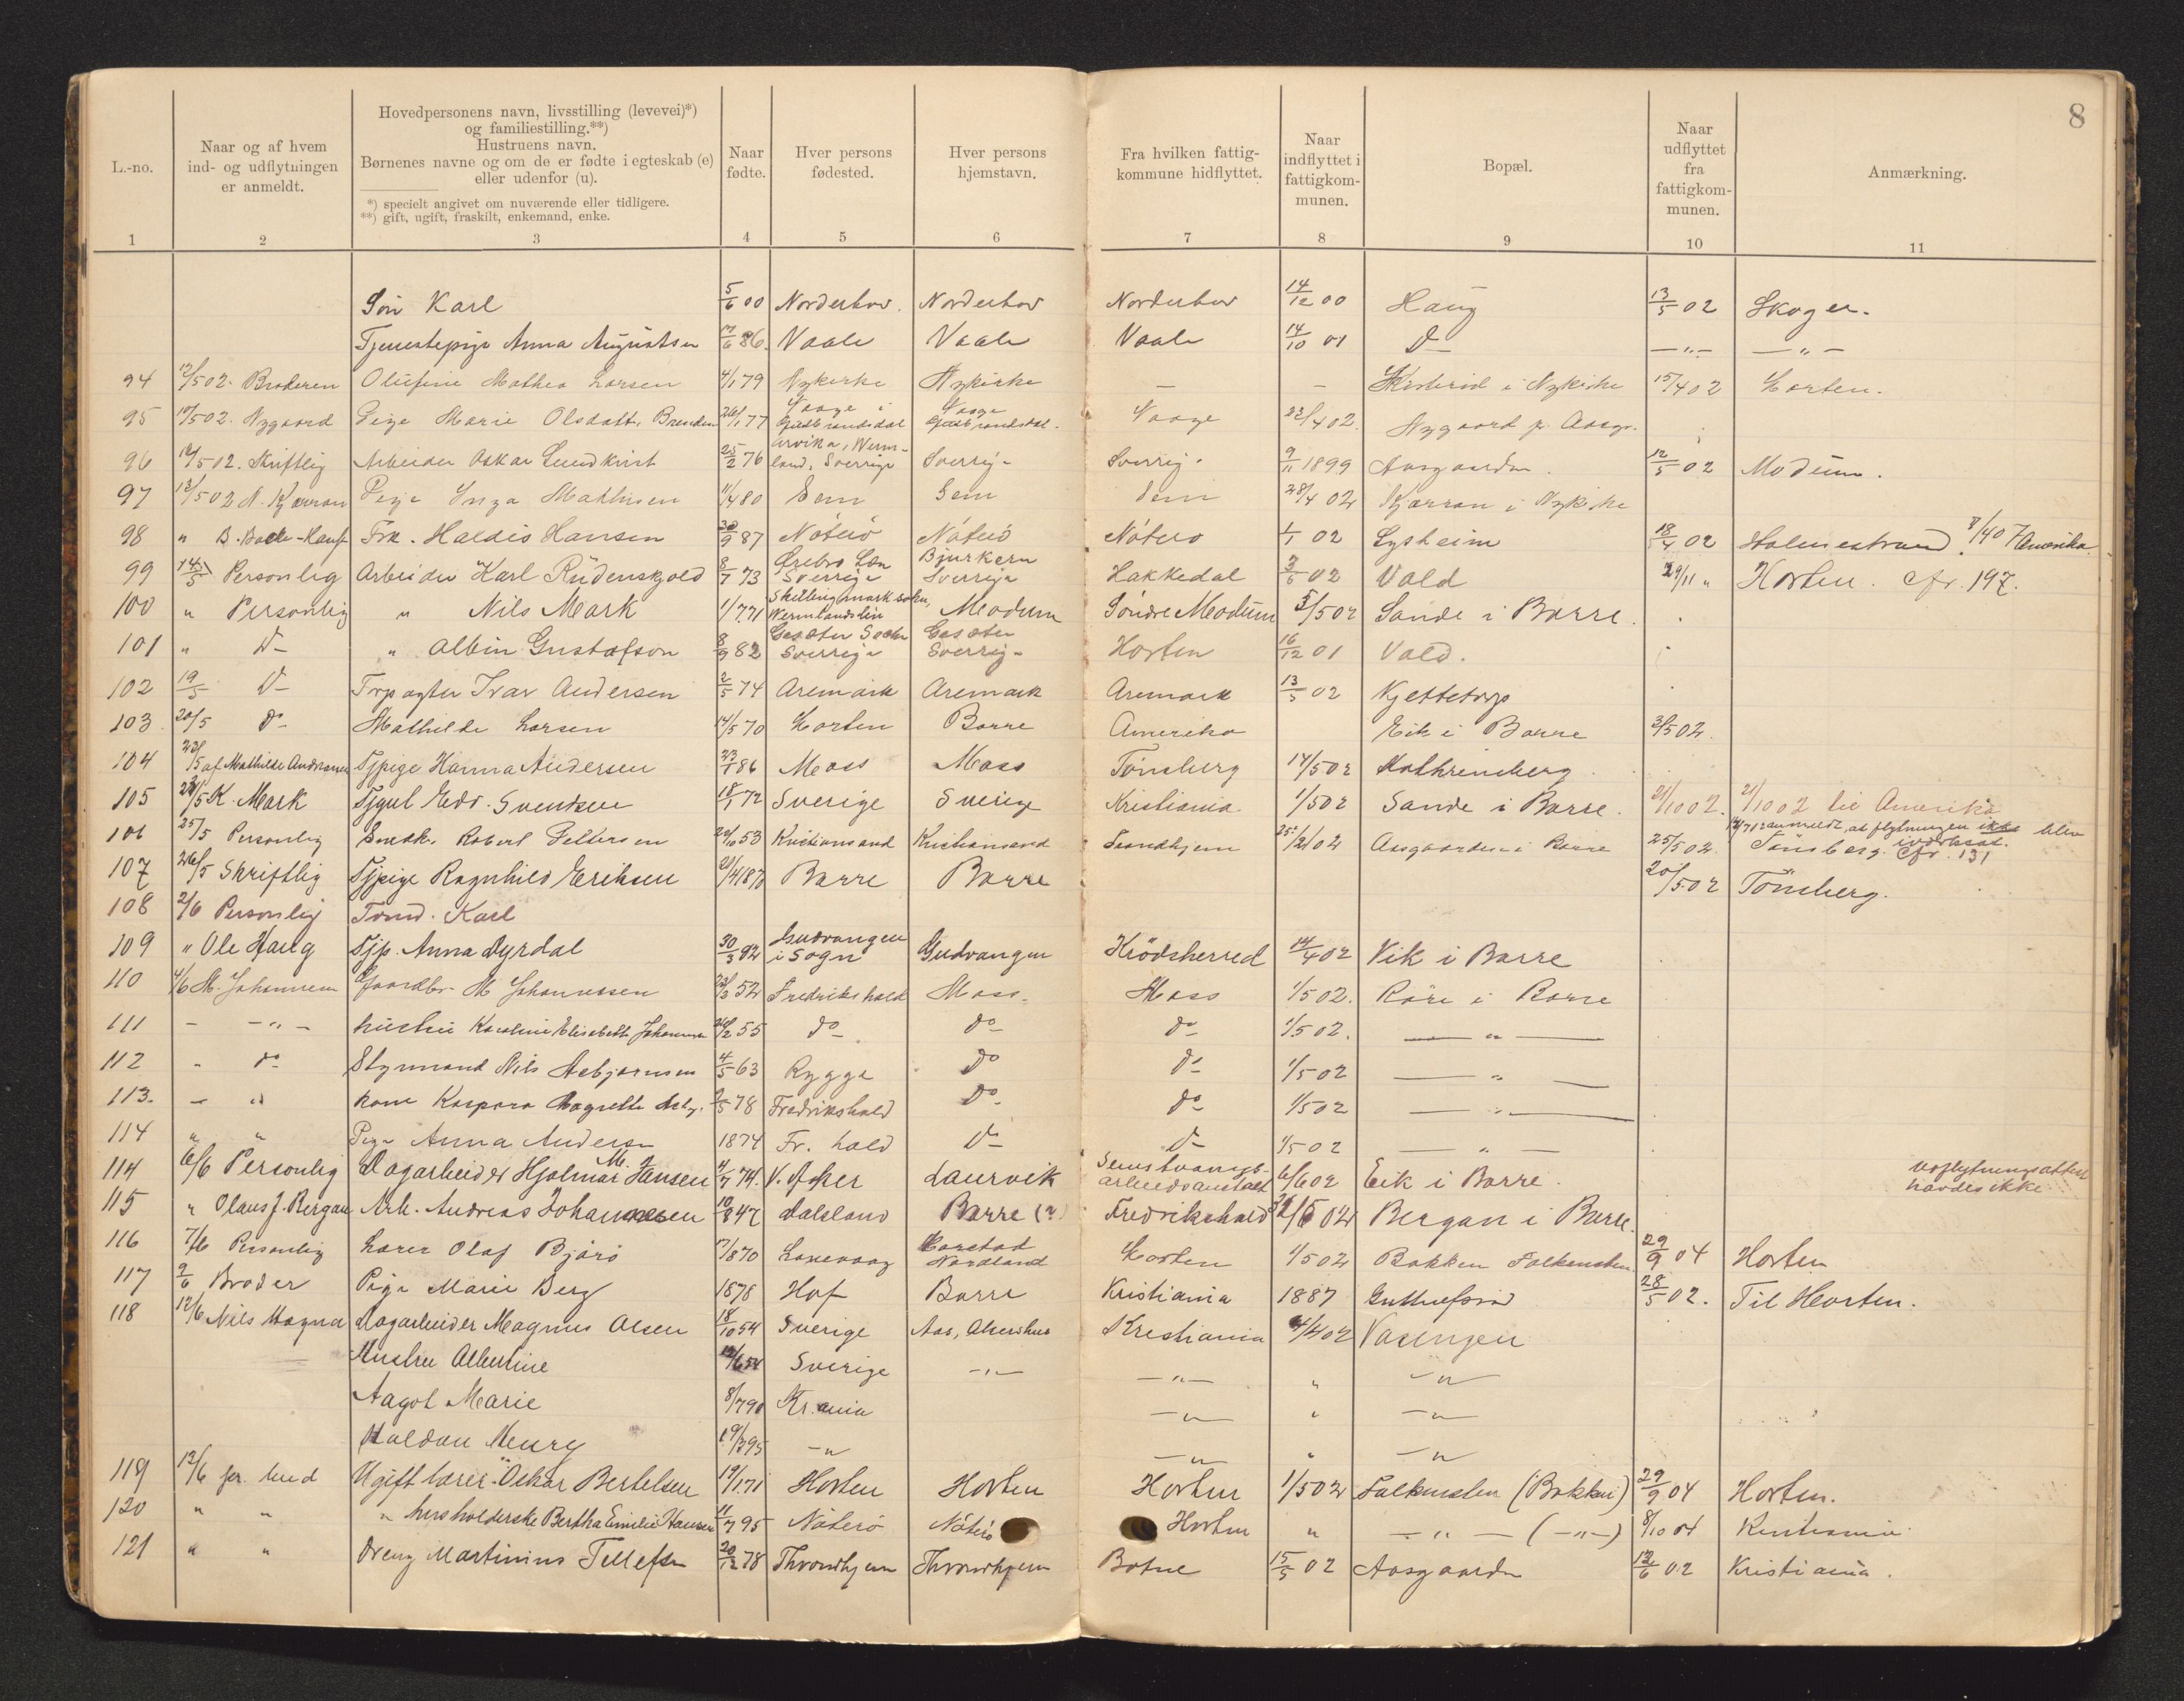 8
L.-no.
Naar og af hvem
ind- og udflytningen
er anmeldt.
Hovedpersonens navn, livsstilling (levevei)*)
og familiestilling.**)
Hustruens navn.
Børnenes navne og om de er fødte i egteskab (e)
eller udenfor (u).
*) specielt angivet om nuværende eller tidligere.
**) gift, ugift, fraskilt, enkemand, enke.
Naar
fødte.
Hver persons
fødested.
Hver persons
hjemstavn.
Fra hvilken fattig-
kommune hidflyttet.
Naar
indflyttet i
fattigkom-
munen.
Bopæl.
Naar
udflyttet
fra
fattigkom-
munen.
Anmærkning.
1 2 3 4 5 6 7 8 9 10 11
Søn Karl 5/6 00 Norderhov. Norderhov Norderhov 14/12 00 Haug 13/5 02 Skoger.
Tjenestepige Anna Augustsen 86. Vaale Vaale Vaale 14/10 01 Do — „ — — „ —
94 12/5 02. Broderen Olufine Mathea Larsen 4/1 79 Nykirke Nykirke — — i Nykirke 15/4 02 Horten.
95 12/5 02. Nygaard Pige Marie Olsdatt. Brenden 26/1 77 Vaage i Gudbrandsdal Vaage Gudbrandsdal. Vaage 22/4 02. Nygaard p. Aasgr.
96 12/5 02. Skriftlig Arbeider Oskar Lundkvist 25/2 76 Arvika, Werm-land, Sverrige Sverrig- Sverrig- 9/11 1899 Aasgaarden. 12/5 02 Modum.
97 13/5 02 N. Kjærran Pige Inga Mathisen 11/4 80 Sem Sem Sem 28/4 02 Kjærran i Nykirke
98 „ B. Frk. Haldis Hansen 30/9 87 Nøterö Nøterö Nøterö 1/1 02 Lysheim 18/4 02 Holmestrand. Amerika.
99 14/5 Personlig Arbeider Karl Rüdenskjold 8/7 73 Ørebro Län Sverrige Bjurkern Sverrige Hakkedal 3/5 02 Vold 29/11 „ Horten. cfr. 197.
100 „ Personlig „ Nils Mark 1/7 71 Skillingmark sokn, Wermlandslän Modum Söndre Modum 5/5 02 Sande i Borre.
101 „ Do „ Albin Gustafson 8/9 82 Gesäter Sockn Sverrige Gesäter Sverrig- Horten 16/12 01 Vold.
102 19/5 Do Forpagter Ivar Andersen 2/5 74 Aremark Aremark Aremark 13/5 02 Kjettetorp
103 20/5 Do Mathilde Larsen 14/5 70 Horten Borre Amerika Eik i Borre 3/5 02.
104 23/5 af Mathilde Andersen Tjpige Hanna Andersen 23/1 86 Moss Moss Tønsberg 17/5 02 Kathrineberg
105 23/5 K. Mark Tjgut Edv. Svendsen 18/1 72 Sverige Sverige Kristiania. 1/5 02 Sande i Borre. 21/10 02. 21/10 02 til Amerika
106 25/5 Personlig Snedk. Robert Pettersen 22/10 53 Kristiansand Kristiansand Trondhjem 25/2 02 Aasgaarden i Borre 25/5 02. anmeldt, at flytningen ikke blev iværksat. Tønsberg. Cfr. 131
107 26/5 Skriftlig Tjpige Ragnhild Eriksen 21/4 1870 Borre Borre 20/5 02 Tönsberg.
108 2/6 Personlig Tømd. Karl
109 „ Ole Haug Tjp. Anna Dyrdal 30/3 82 Gudvangen i Sogn Gudvangen Krödsherred 14/4 02 Vik i Borre
110 4/6 M. Johannesen Gaardbr. M Johannesen 23/3 52 Fredrikshald Moss. Moss 1/5 02. Röre i Borre
111 — — „ — hustru Karoline Elisabeth Johannes 55 do do do 1/5 02. — „ —
112 „ do Styrmand Nils Asbjørnsen 4/5 63 Rygge do do 1/5 02 — „ —
113. — „ kone Kaspara Magrethe Asbj. 2/5 78 Fredrikshald do do 1/5 02 — „ —
114 „ „ Pige Anna Andersen 1874 Fr. hald do do 1/5 02 — „ —
114 6/6 Personlig Dagarbeider Hjalmar M. Hansen 4/7 74. V. Aker Laurvik Sems tvangs-arbeidsanstalt 6/6 02 Eik i Borre. havdes ikke
115 „ Olaus J. Bergan Arb. Andreas Johannesen 10/8 47 Dalsland Borre (?) Fredrikshald Bergan i Borre.
116 7/6 Personlig Lærer Olaf Bjørø 7/8 70 Harstad Nordland Horten 1/5 02 Bakken Falkensten 29/9 04 Horten
117 9/6 Broder Pige Marie Berg 1878 Hof Borre Kristiania 1887 28/5 02. Til Horten.
118 12/6 Nils Magnus Dagarbeider Magnus Olsen 18/10 54 Sverige Aas, Akershus Kristiania 4/4 02 Vasengen
Hustru Albertine Sverige — „ — — „ — „ — „
Aagot Marie 8/7 90 Kr.ania — „ — „ — „
Haldan Henry 19/3 95 — „ — „ — „ — „
119 12/6 pr. bud Ugift lærer Oskar Bertelsen 19/1 71 Horten Horten Horten 1/5 02 Falkensten (Bakken) 29/9 04 Horten.
120 „ „ „ husholderske Bertha Emilie Hansen 11/7 95 Nøterö Nøterö Horten „ — „ — (— „ —) 8/10 04 Kristiania.
121 „ „ Dreng Martinius Tellefsen 20/12 78 Throndhjem Throndhjem Botne 15/5 02 Aasgaarden 12/6 02 Kristiania.